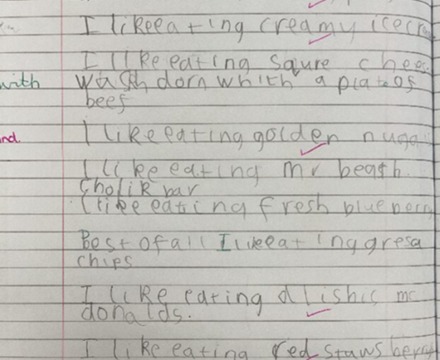 I likeeating creamy icecr
I like eating squre chees
with wash dorn which a plate of
beef
nd
I like eating golden nugg
I like eating mr beasth
cholik bar
I like eating fresh blueberry
Best of all I likeeat ing gresa
chips
I like eating dlishis mc
donalds.
I like eating red staws berry